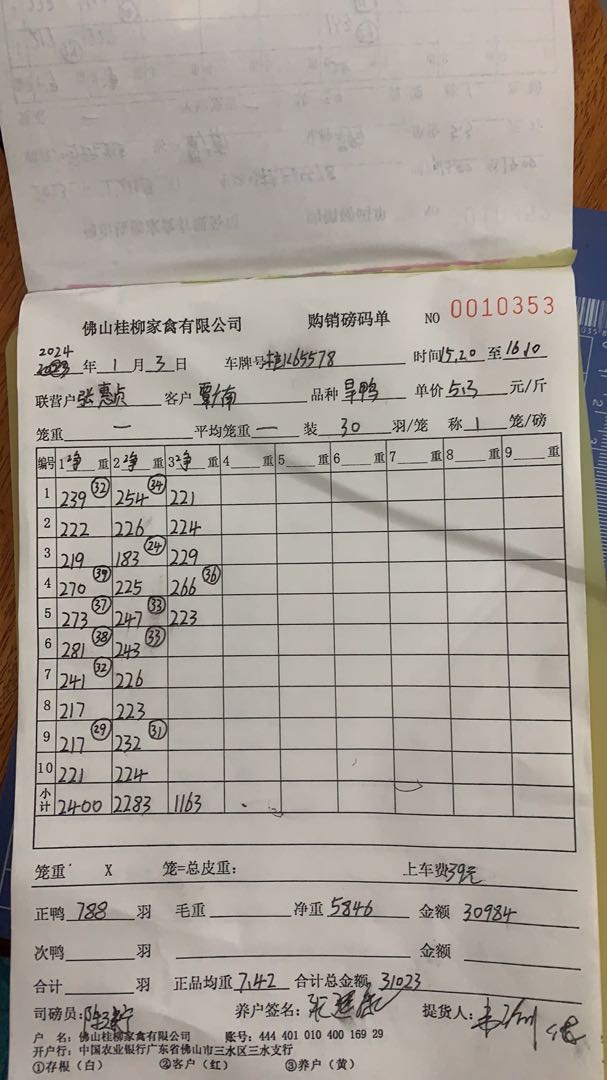 佛山桂柳家禽有限公司 购销磅码单 NO 0010353
2024
年 1 月 3 日 车牌号 桂K65578 时间 15.20 至 16.10
联营户 张惠贞 客户 覃广南 品种 旱鸭 单价 5.3 元/斤
笼重 一 平均笼重 一 装 30 羽/笼 称 1 笼/磅
编号 1净重 2净重 3净重 4 重 5 重 6 重 7 重 8 重 9 重
1 239 (32) 254 (34) 221
2 222 226 224
3 219 183 (24) 229
4 270 (39) 225 266 (36)
5 273 (37) 247 (33) 223
6 281 (38) 243 (33)
7 241 (32) 226
8 217 223
9 217 (29) 232 (31)
10 221 224
小计 2400 2283 1163
笼重 X 笼=总皮重: 上车费 39元
正鸭 788 羽 毛重 净重 5846 金额 30984
次鸭 羽 金额
合计 羽 正品均重 7.42 合计总金额 31023
司磅员: 养户签名: 提货人:
户 名: 佛山桂柳家禽有限公司 账号: 444 401 010 400 169 29
开户行: 中国农业银行广东省佛山市三水区三水支行
①存根(白) ②客户(红) ③养户(黄)